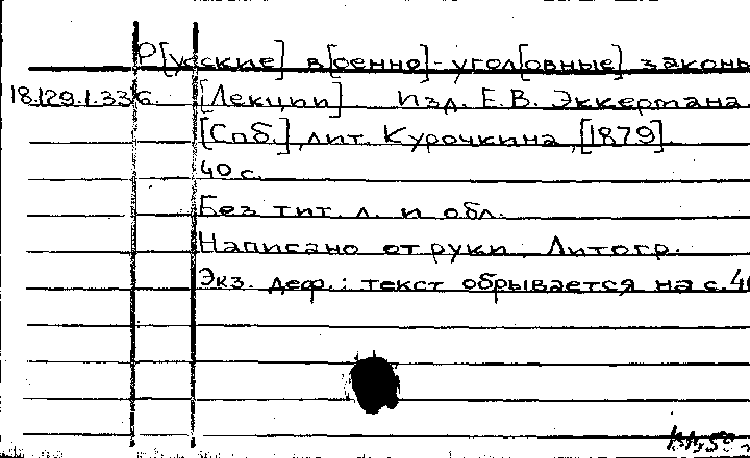 Р[усские] в[оенно]-угол[овные] законы
18.129.1.336. [Лекции] Изд. Е.В. Эккермана
[Спб.], лит. Курочкина, [1879].
40 с.
Без тит. л. и обл.
Написано от руки. Литогр.
Экз. деф.: текст обрывается на с. 40